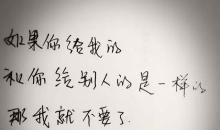 如果你给我的
和你给别人的是一样的
那我就不要了.